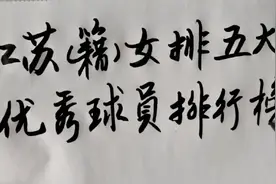 江苏(籍)女排五大
优秀球員排行榜